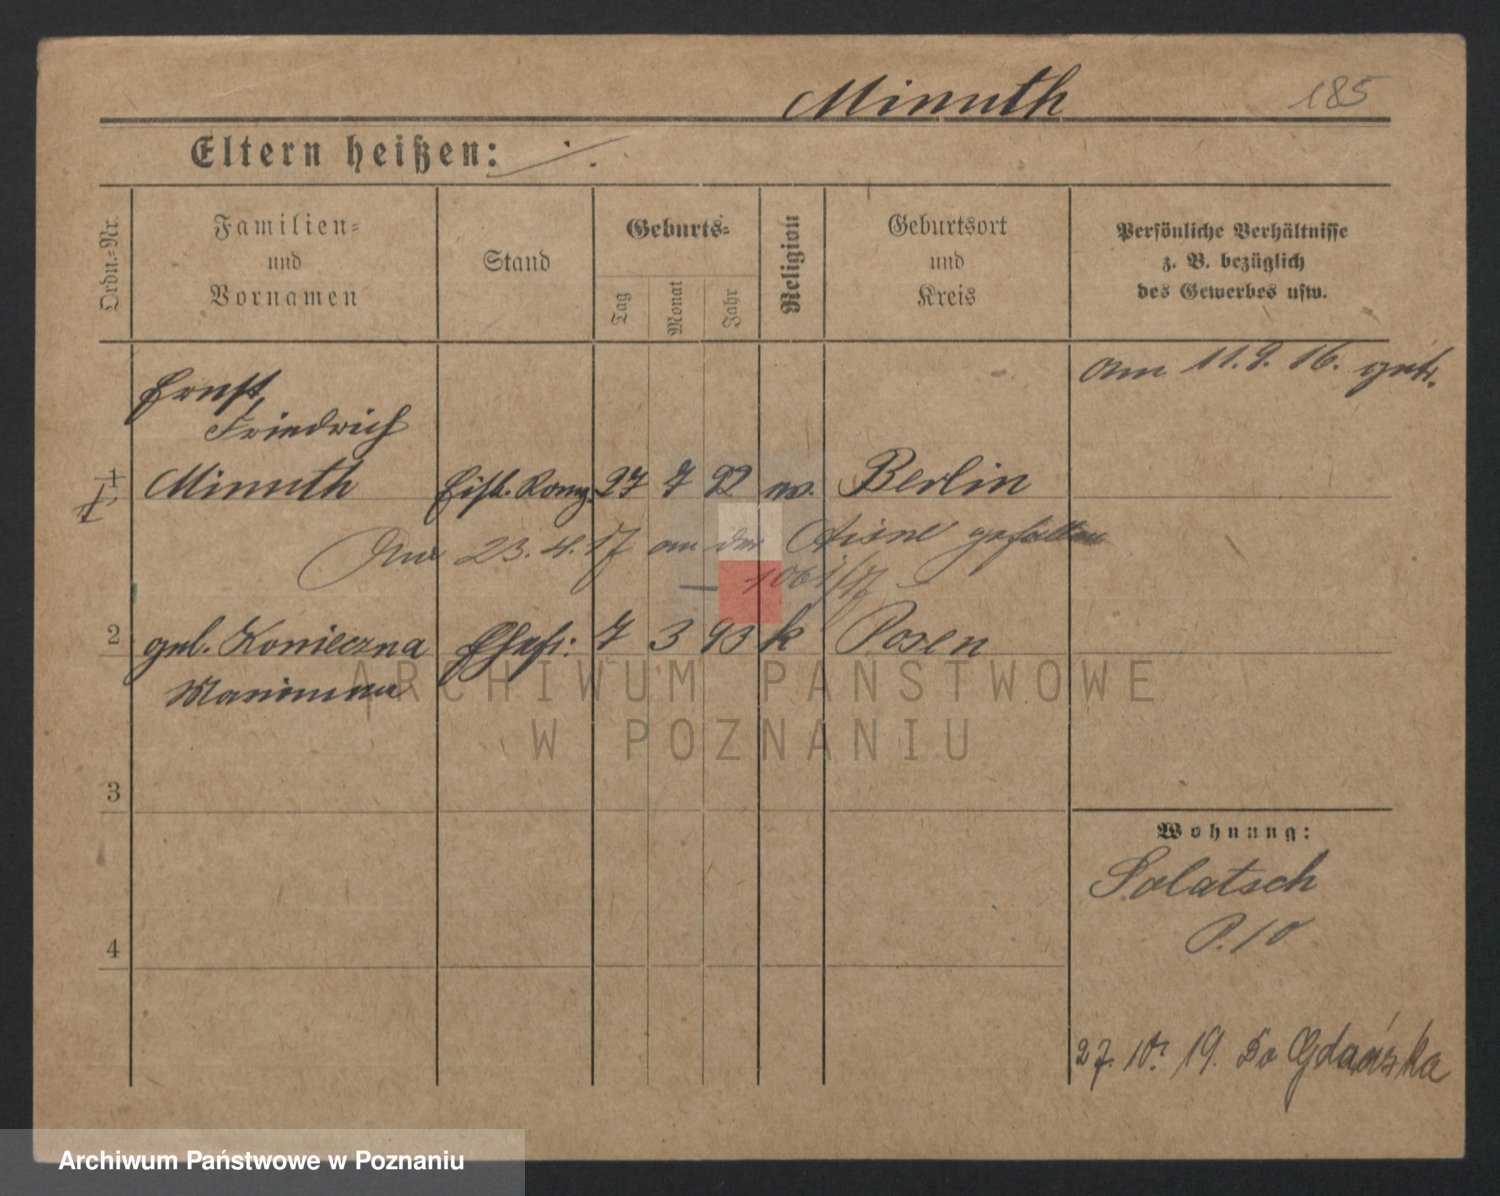 Minuth 185
Eltern heißen: ·/.
Ordn.-Nr.
Familien-
und
Vornamen
Stand
Geburts-
Tag
Monat
Jahr
Religion
Geburtsort
und
Kreis
Persönliche Verhältnisse
z. B. bezüglich
des Gewerbes usw.
am 11.9.16. getr.
Ernst
Friedrich
1 Minuth 27 7 92 Berlin
Am 23.4.17 an der Aisne gefallen
2 geb. Konieczna Ehefr: 7 3 93 k Posen
Marianna
ARCHIWUM PAŃSTWOWE
W POZNANIU
3
Wohnung:
Solatsch
P. 10
4
27. 10. 19. Do Gdańska
Archiwum Państwowe w Poznaniu